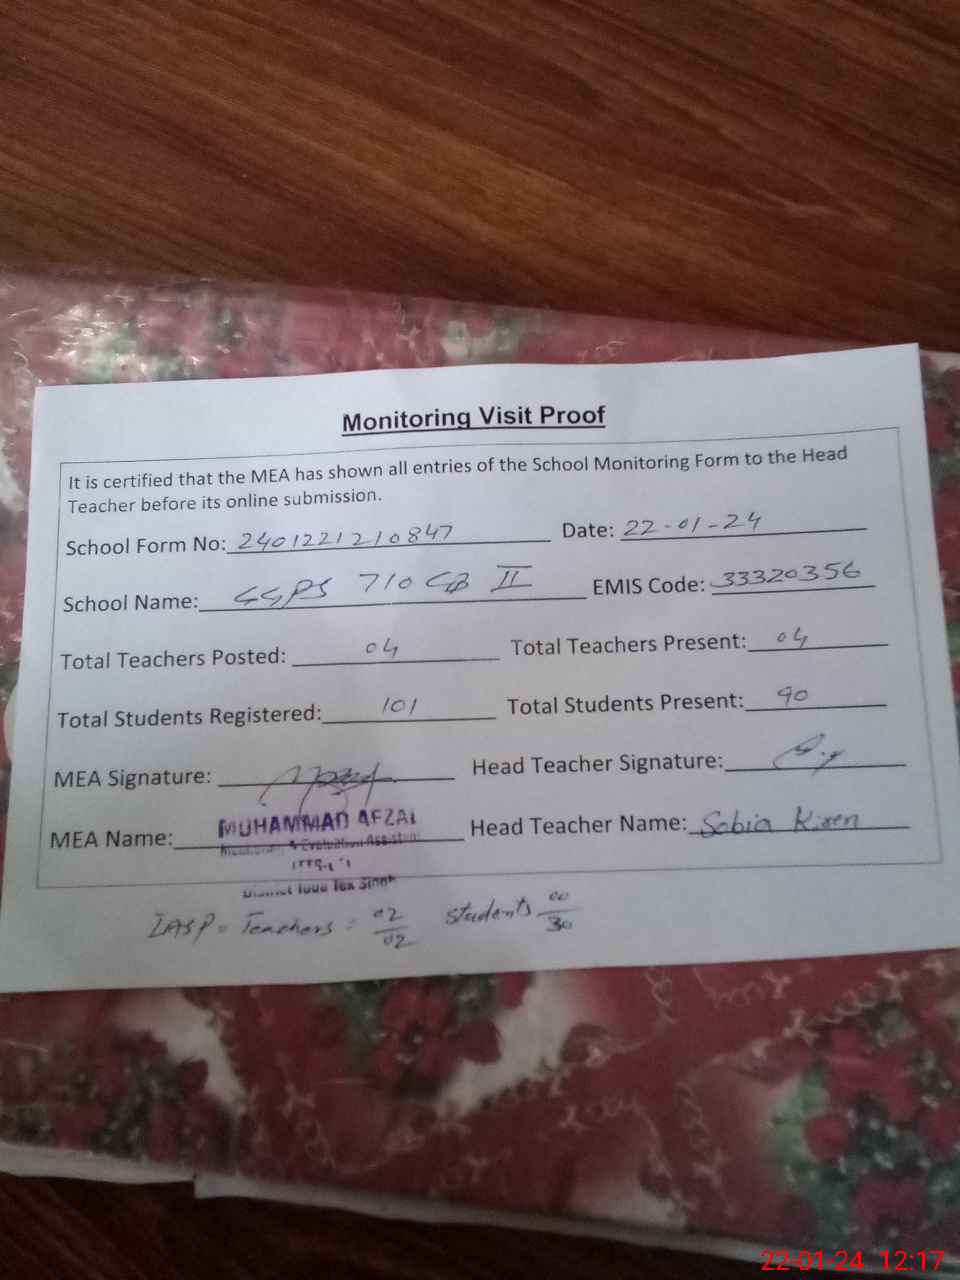 Monitoring Visit Proof
It is certified that the MEA has shown all entries of the School Monitoring Form to the Head
Teacher before its online submission.
School Form No: 2401221210847 Date: 22-01-24
School Name: GGPS 710 GB II EMIS Code: 33320356
Total Teachers Posted: 04 Total Teachers Present: 04
Total Students Registered: 101 Total Students Present: 90
MEA Signature: Head Teacher Signature:
MEA Name: MUHAMMAD AFZAL Head Teacher Name: Sobia Kiren
Monitoring & Evaluation Assistant
District Toba Tek Singh
IASP = Teachers = 02/02 Students 00/30
22-01-24 12:17